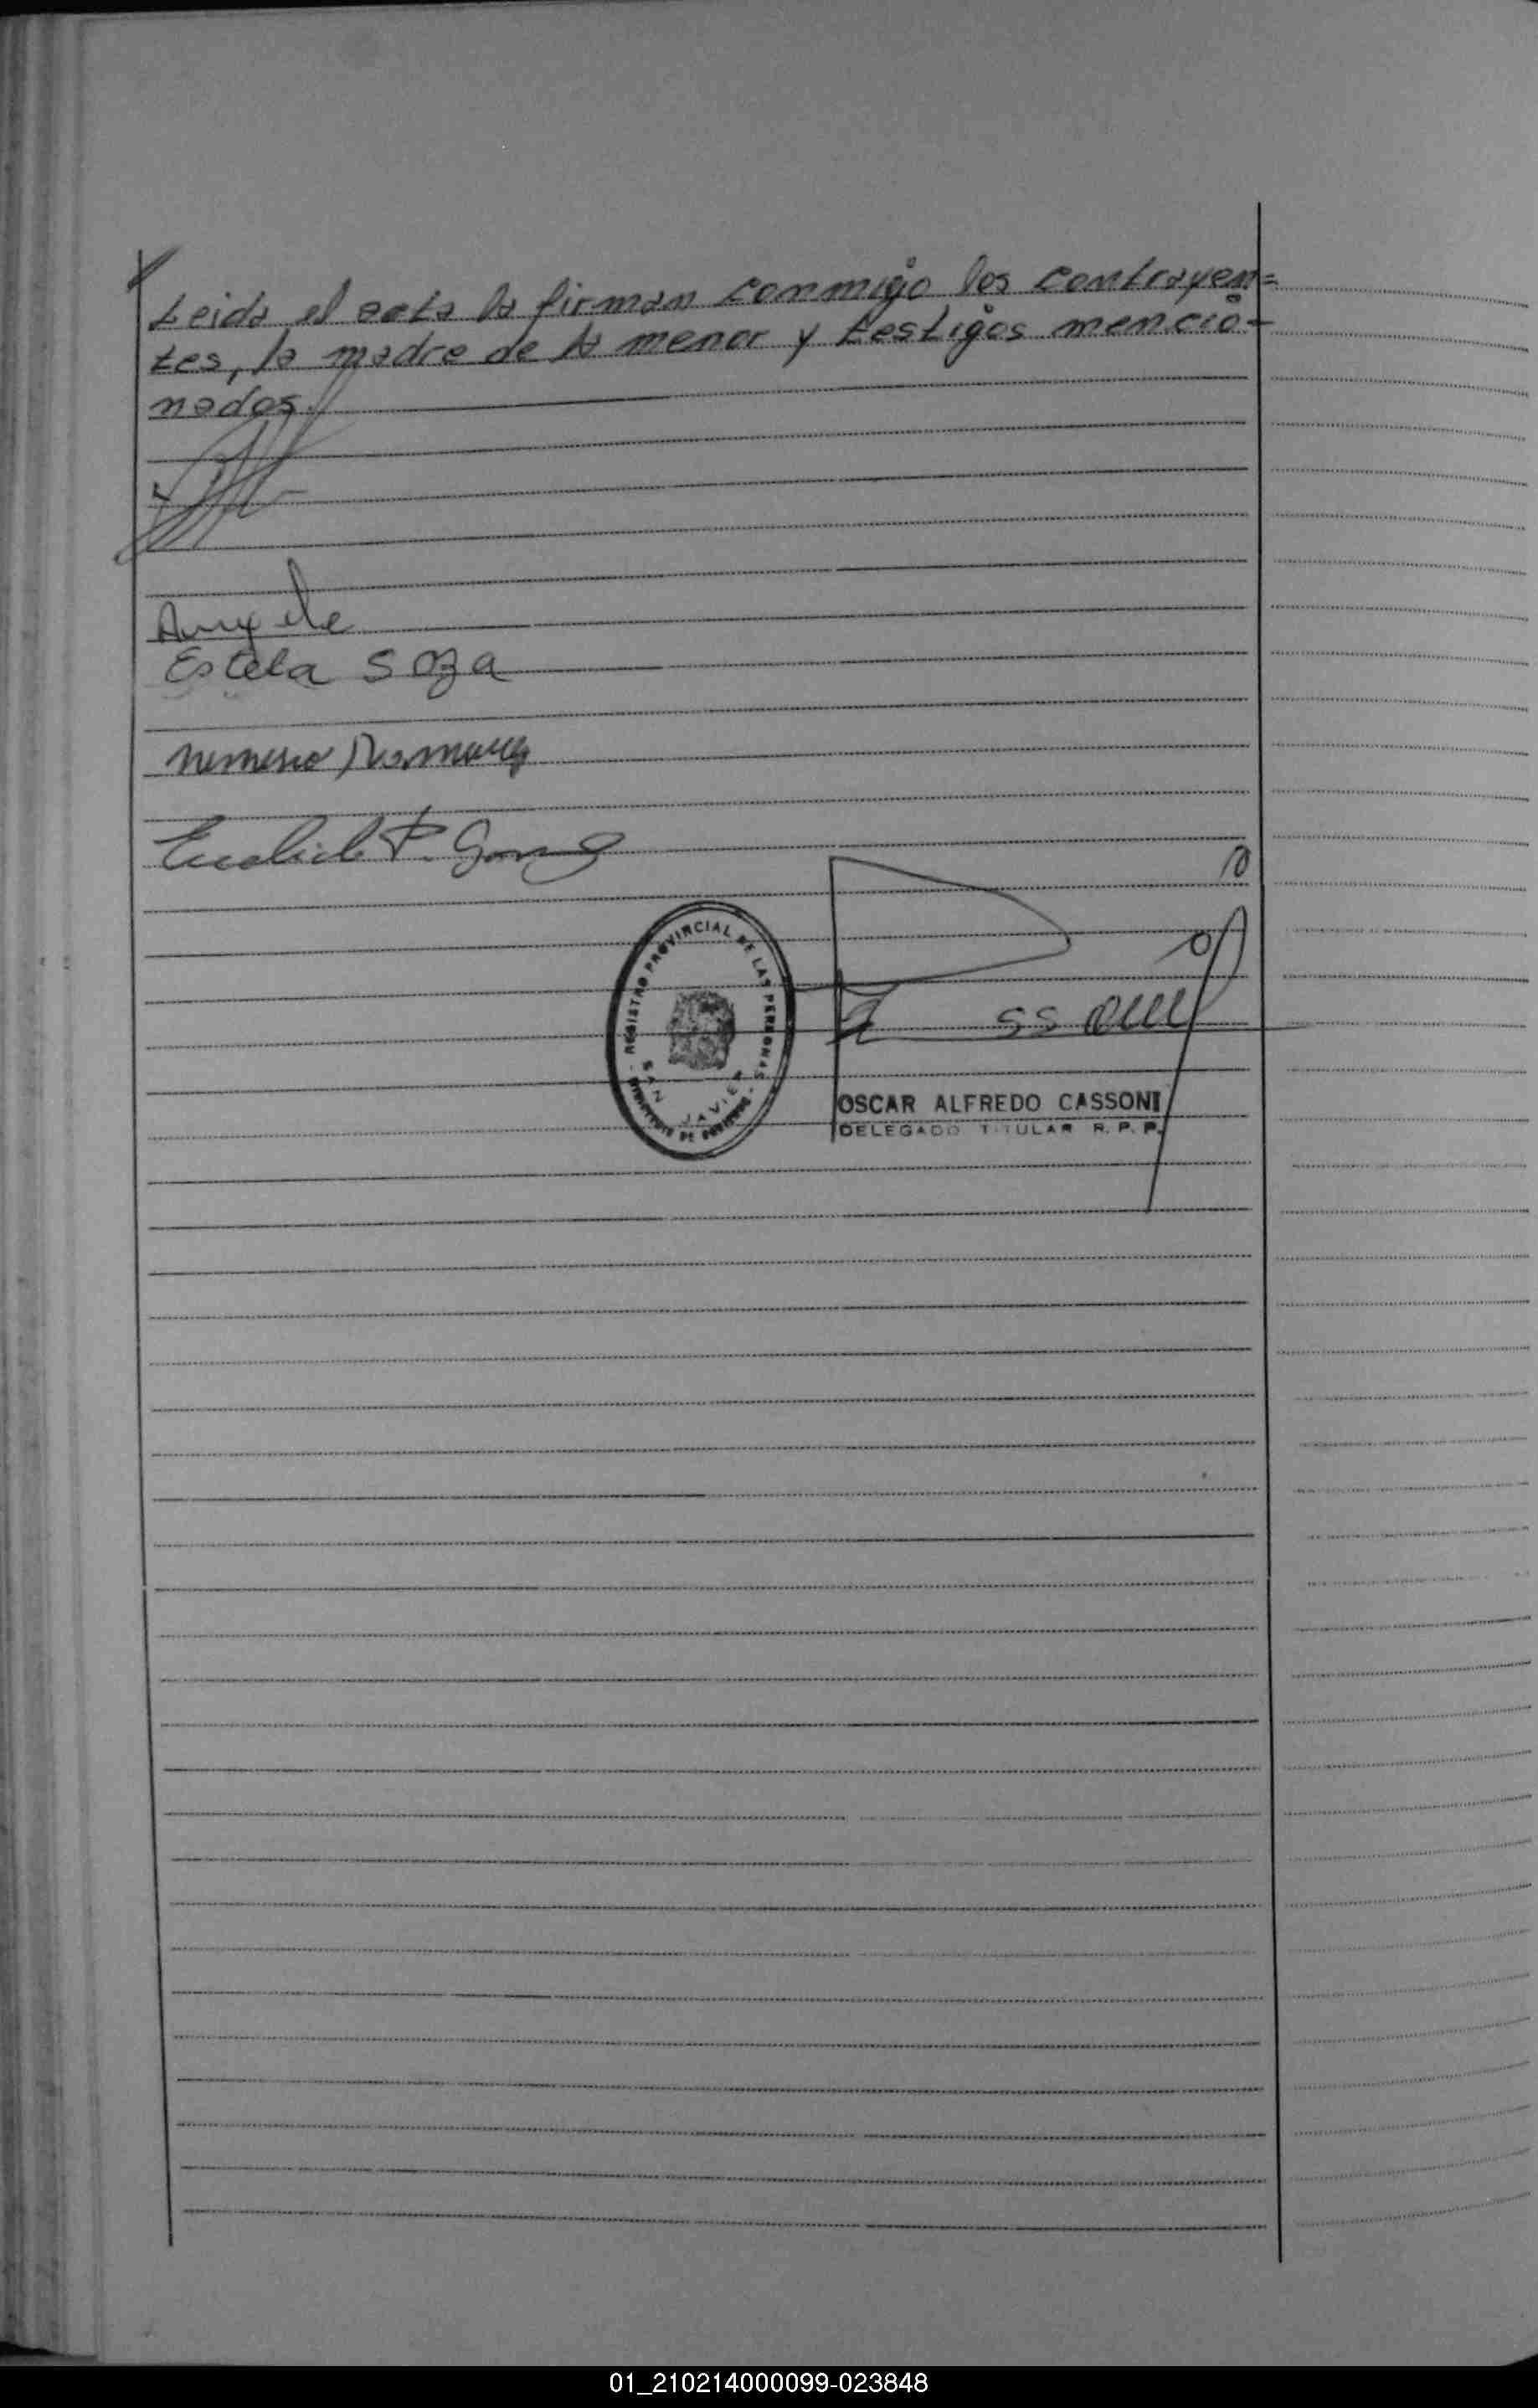 Leida el acta la firman conmigo los contrayen=
tes, la madre de la menor y testigos mencio-
nados.
Estela Soza
REGISTRO PROVINCIAL DE LAS PERSONAS
SAN JAVIER
OSCAR ALFREDO CASSONI
DELEGADO TITULAR R. P. P.
01_210214000099-023848